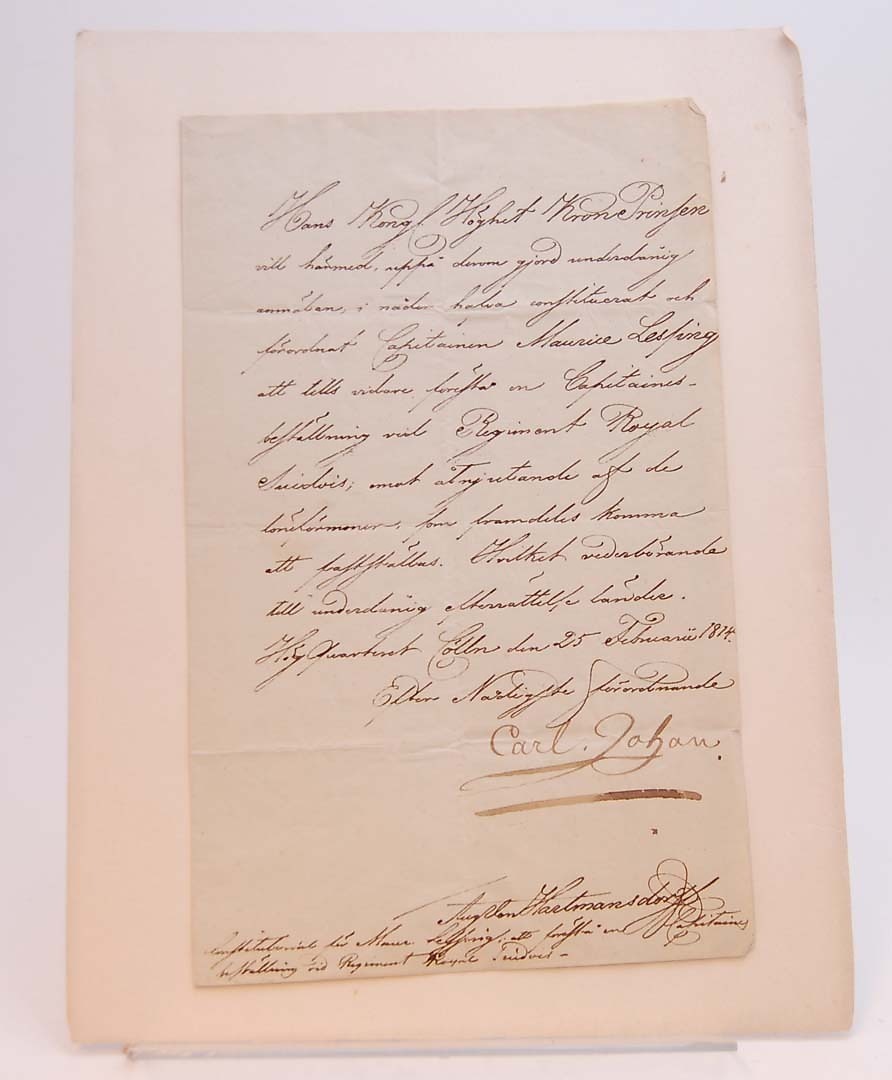 Hans Kongl. Höghet Kron Prinsen
vill härmed, uppå derom gjord underdånig
anmälan, i nåder hafva constituerat och
förordnat Capitainen Maurice Lessing
att tills vidare förestå en Capitaines-
beställning vid Regiment Royal
Suèdois; emot åtnjutande af de
löneförmoner, som framdeles komma
att fastställas. Hvilket vederbörande
till underdånig efterrättelse länder.
Hög Quarteret Cölln den 25 Februarii 1814.
Efter Nådigste förordnande
Carl. Johan.
Aug. von Hartmansdorff
Constitutorial för Maur. Lessing, att förestå en Capitaines
beställning vid Regiment Royal Suèdois -